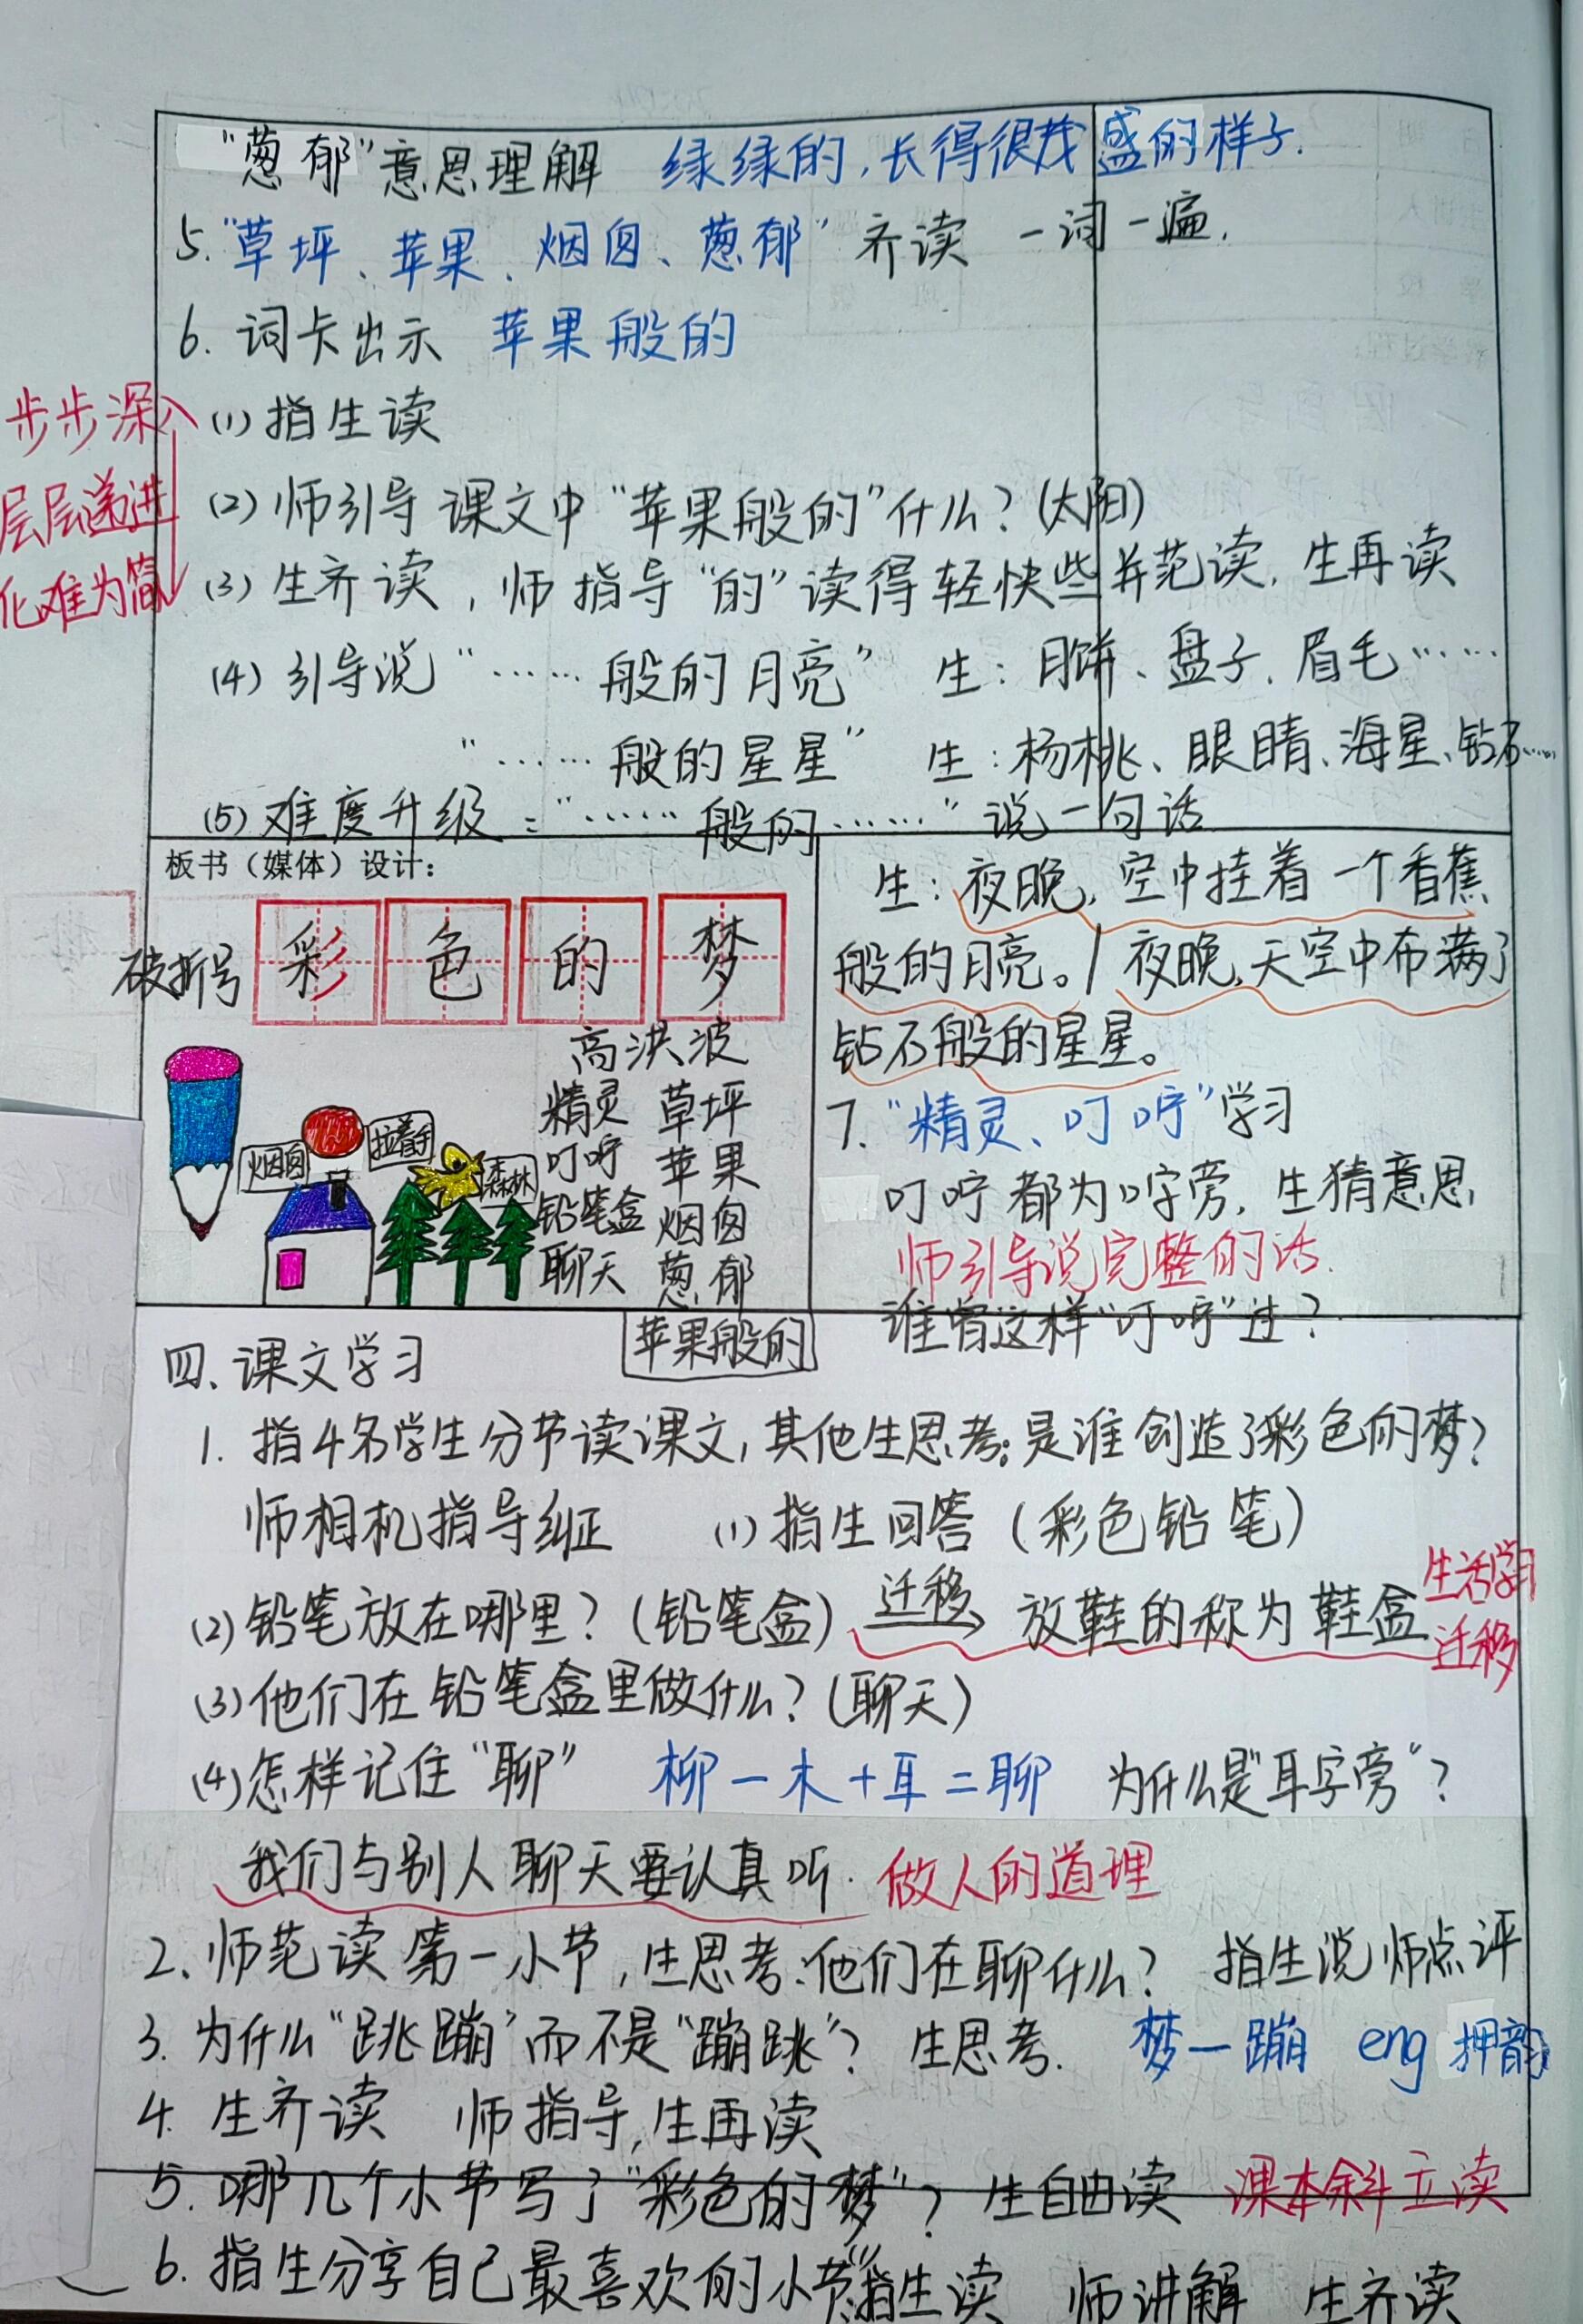 “葱郁”意思理解 绿绿的，长得很茂盛的样子.
5.“草坪、苹果、烟囱、葱郁”齐读 一词一遍.
6. 词卡出示 苹果般的
步步深入
层层递进
化难为简
(1) 指生读
(2) 师引导 课文中“苹果般的”什么？(太阳)
(3) 生齐读，师指导“的”读得轻快些并范读，生再读
(4) 引导说“……般的月亮” 生：月饼、盘子、眉毛……
“……般的星星” 生：杨桃、眼睛、海星、钻石……
(5) 难度升级：“……般的……”说一句话
板书（媒体）设计：
破折号 彩色的梦
高洪波
精灵 草坪
叮咛 苹果
铅笔盒 烟囱
聊天 葱郁
苹果般的
烟囱
拉着手
森林
生：夜晚，空中挂着一个香蕉
般的月亮。/夜晚，天空中布满了
钻石般的星星。
7.“精灵、叮咛”学习
叮咛都为口字旁，生猜意思
师引导说完整的话.
谁曾这样“叮咛”过？
四、课文学习
1. 指4名学生分节读课文，其他生思考：是谁创造了彩色的梦？
师相机指导纠正 (1) 指生回答（彩色铅笔）
(2) 铅笔放在哪里？(铅笔盒) 迁移 放鞋的称为鞋盒
生活学习
迁移
(3) 他们在铅笔盒里做什么？(聊天)
(4) 怎样记住“聊” 柳－木＋耳＝聊 为什么是“耳字旁”？
我们与别人聊天要认真听. 做人的道理
2、师范读第一小节，生思考：他们在聊什么？ 指生说 师点评
3. 为什么“跳蹦”而不是“蹦跳”？ 生思考. 梦－蹦 eng 押韵
4. 生齐读 师指导，生再读
5. 哪几个小节写了“彩色的梦”？ 生自由读 课本斜立读
6. 指生分享自己最喜欢的小节 指生读 师讲解 生齐读